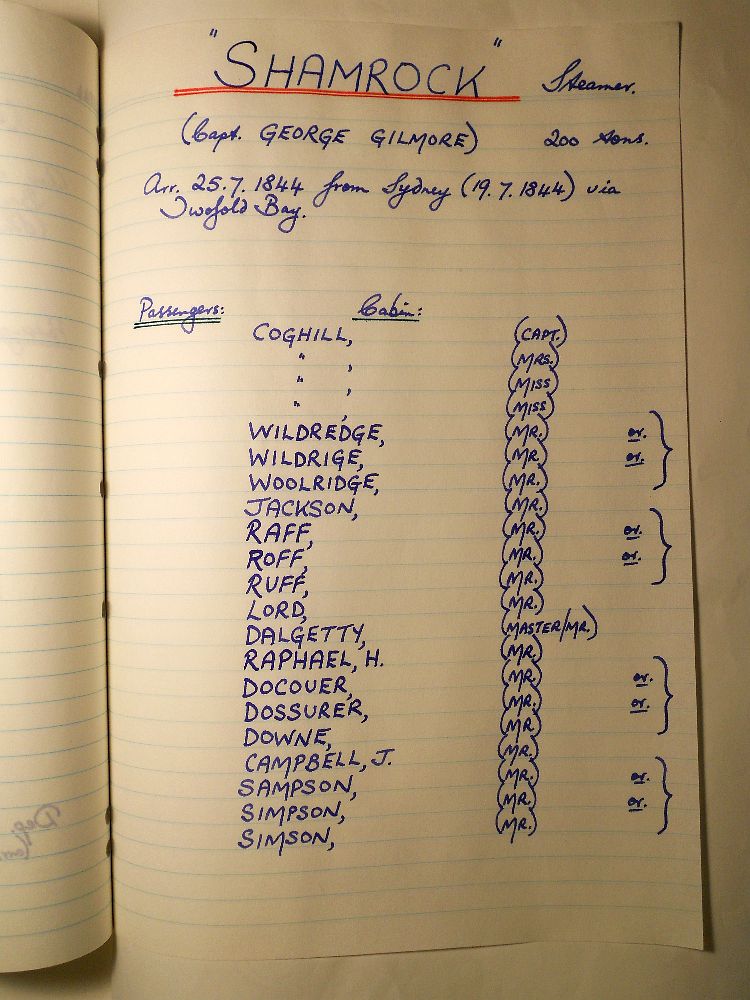 "SHAMROCK" Steamer.
(Capt. GEORGE GILMORE) 200 tons.
Arr. 25.7.1844 from Sydney (19.7.1844) via
Twofold Bay.
Passengers: Cabin:
COGHILL, (CAPT.)
" , (MRS.)
" , (MISS)
" , (MISS)
WILDREDGE, (MR.) or.
WILDRIGE, (MR.) or.
WOOLRIDGE, (MR.)
JACKSON, (MR.)
RAFF, (MR.) or.
ROFF, (MR.) or.
RUFF, (MR.)
LORD, (MR.)
DALGETTY, (MASTER/MR.)
RAPHAEL, H. (MR.)
DOCOUER, (MR.) or.
DOSSURER, (MR.) or.
DOWNE, (MR.)
CAMPBELL, J. (MR.)
SAMPSON, (MR.) or.
SIMPSON, (MR.) or.
SIMSON, (MR.)